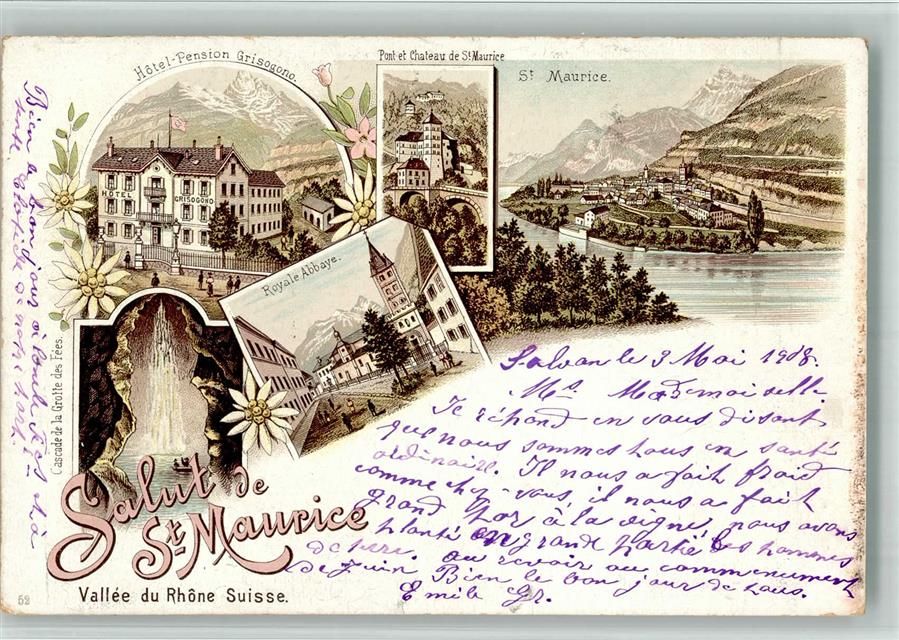 Hôtel-Pension Grisogono.
HÔTEL
GRISOGONO
Pont et Chateau de St Maurice
St Maurice.
Royale Abbaye.
Cascade de la Grotte des Fées.
Salut de
St Maurice
Vallée du Rhône Suisse.
52
Salvan le 3 Mai 1908.
Mademoiselle
Je répond en vous disant
que nous sommes tous en santé
ordinaire. Il nous a fait froid
comme chez-vous, il nous a fait
grand tor à la vigne, nous avons
planté en grande partie les pommes
de terre. au revoir au commencement
de Juin Bien le bon jour de tous.
Emile Gr.
Bien le bonjour à
de notre part.